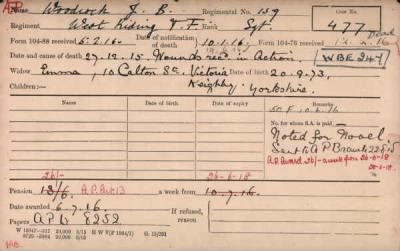 A.P.
Name Woodcock J. B. Regimental No. 159 Case No.
Regiment West Riding V. F. Rank Sgt. 477
Form 104-88 received 5.2.16. Date of notification of death 10.1.16 Form 104-76 received 12.2.16 Dead
Date and cause of death 27.12.15. Wounds rec'd in Action. WBE 247
Widow Emma, 10 Calton St. Victoria Date of birth 20.9.73,
Children:— Keighley. Yorkshire.
Name Date of birth Name Date of birth Remarks
S.O.F. 10.6.16
No. for whom S.A. is paid—
Noted for Novel.
Sent to A P Branch 22815
A.P. Award 26/- a week from 26-6-18
26/- 26-6-18
Pension 13/6. A.P. a week from 10.7.16.
Date awarded 6.7.16 If refused, reason
Papers A.P.W 8252
H W V(P 1984/2) G. 15/261